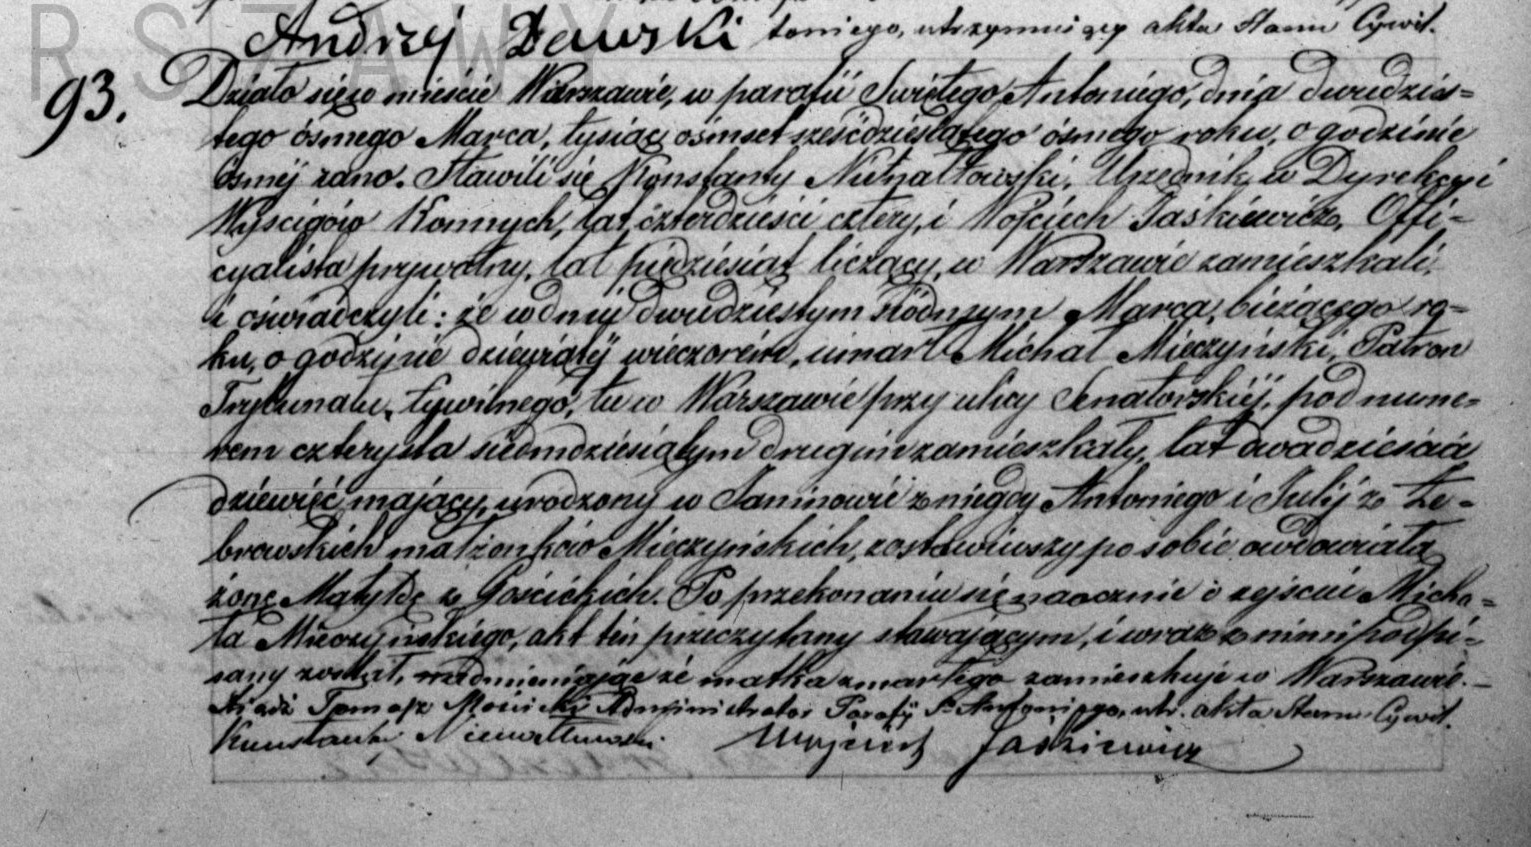 RSZAWY
Andrzej Zewski toniego, utrzymujący akta Stanu Cywil.
93.
Działo się w mieście Warszawie, w parafii Świętego Antoniego, dnia dwudzies=
tego ósmego Marca, tysiąc ośmset sześćdziesiątego ósmego roku, o godzinie
ósméj rano. Stawili się Konstanty Nieznałtowski, Urzędnik w Dyrekcyi
Wyścigów Konnych, lat czterdzieści cztery, i Wojciech Jaśkiewicz, Offi=
cyalista prywatny, lat piędziesiąt liczący, w Warszawie zamieszkali,
i oświadczyli: że w dniu dwudziestym siódmym Marca, bieżącego ro=
ku, o godzinie dziewiątéj wieczorem, umarł Michał Mieczyński, Patron
Trybunału Cywilnego, tu w Warszawie przy ulicy Senatorskiéj, pod nume=
rem czterysta siedmdziesiątym drugim zamieszkały, lat dwadzieścia
dziewięć mający, urodzony w Janinowie z niegdy Antoniego i Julij z Że=
browskich małżonków Mieczyńskich, zostawiwszy po sobie owdowiałą
żonę Matyldę z Gościckich. Po przekonaniu się naocznie o zejściu Micha=
ła Mieczyńskiego, akt ten przeczytany stawającym, i wraz z nimi podpi=
sany został, nadmieniając że matka zmarłego zamieszkuje w Warszawie.
Xiądz Tomasz Mościcki Administrator Parafij S. Antoniego, utr. akta Stanu Cywil.
Konstanty Wojciech Jaśkiewicz